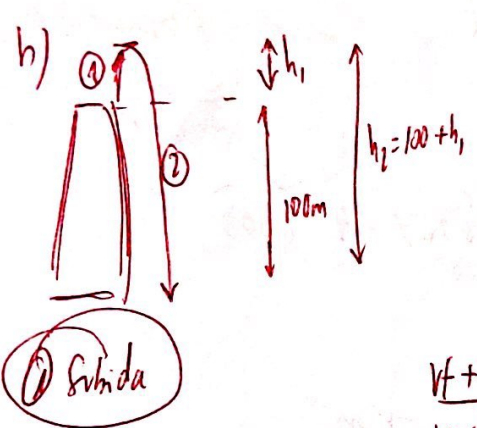 h)
①
h₁
②
100m
h₂=100+h₁
① Subida
Vf +